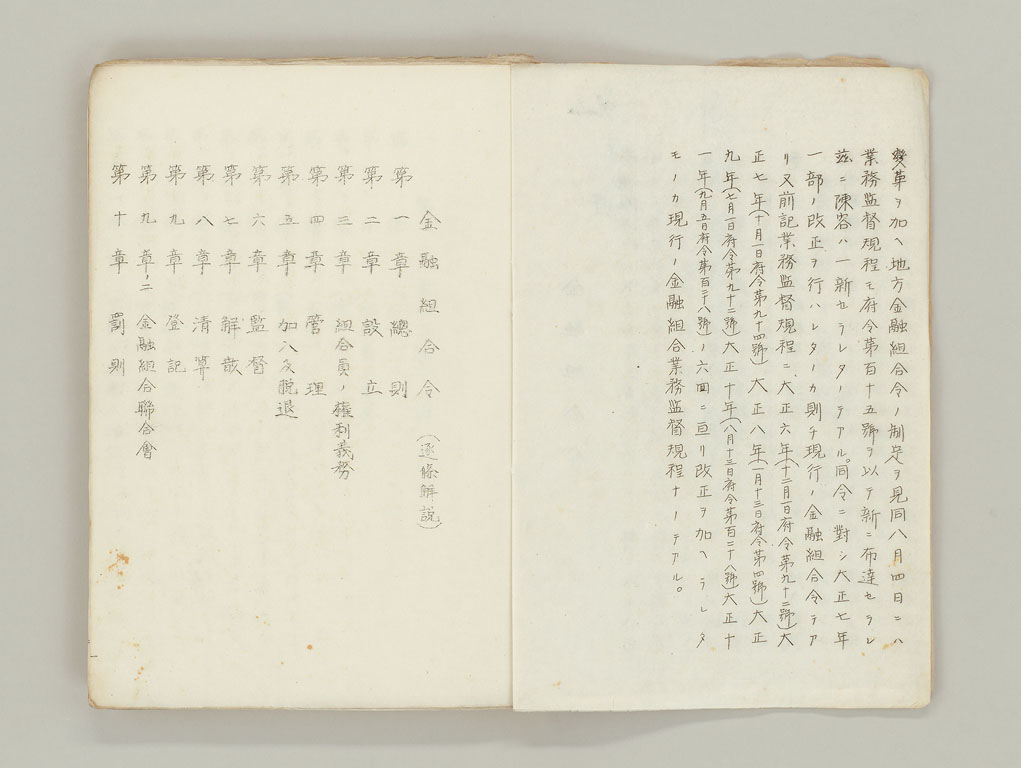 變革ヲ加ヘ地方金融組合令ノ制定ヲ見同八月四日ニハ
業務監督規程モ府令第百十五號ヲ以テ新ニ布達セラレ
茲ニ陳容ハ一新セラレターテアル。同令ニ對シ大正七年
一部ノ改正ヲ行ハレターカ則チ現行ノ金融組合令テア
リ又前記業務監督規程ニ大正六年(十二月一日府令第九十二號)大
正七年(十月一日府令第九十四號)大正八年(一月十三日府令第四號)大正
九年(七月一日府令第九十二號)大正十年(八月十三日府令第百二十八號)大正十
一年(九月五日府令第百二十八號)ノ六囬ニ亘リ改正ヲ加ヘラレタ
モノカ現行ノ金融組合業務監督規程ナノテアル。
金融組合令(逐條解説)
第一章 總則
第二章 設立
第三章 組合員ノ權利義務
第四章 管理
第五章 加入及脱退
第六章 監督
第七章 解散
第八章 清算
第九章 登記
第九章ノ二 金融組合聯合會
第十章 罰則